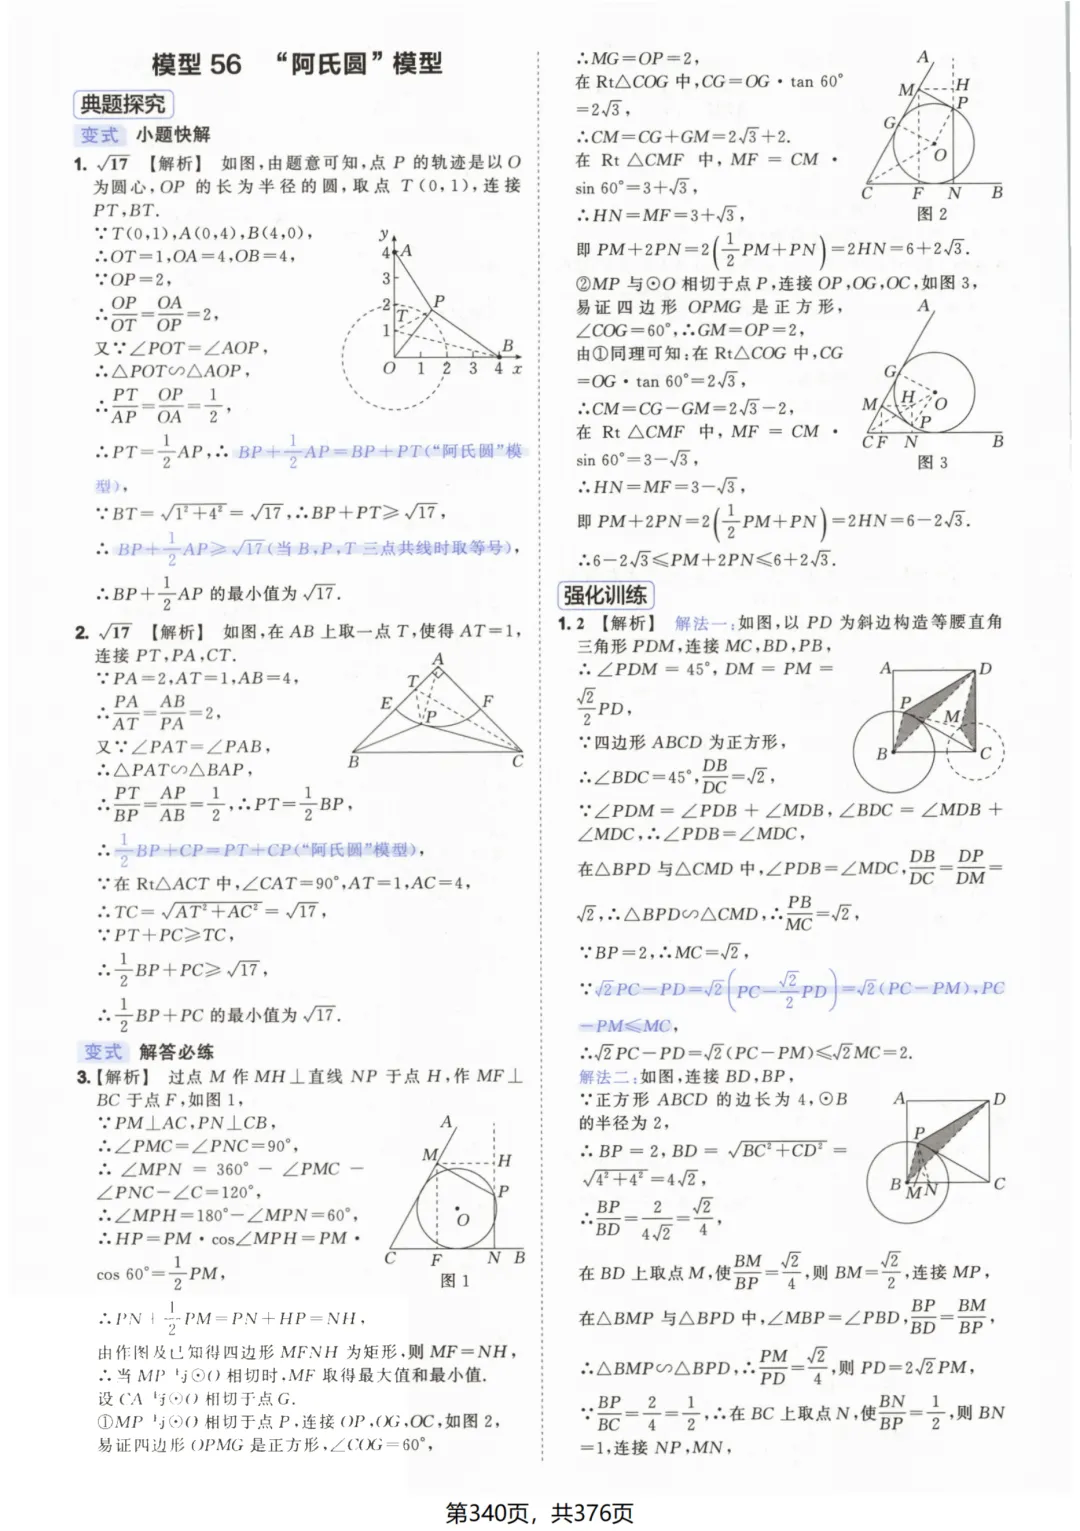 模型 56 “阿氏圆”模型
典题探究
变式 小题快解
1. √17 【解析】 如图,由题意可知,点 P 的轨迹是以 O
为圆心,OP 的长为半径的圆,取点 T(0,1),连接
PT,BT.
∵T(0,1),A(0,4),B(4,0),
∴OT=1,OA=4,OB=4,
∵OP=2,
∴OP/OT=OA/OP=2,
又∵∠POT=∠AOP,
∴△POT∽△AOP,
∴PT/AP=OP/OA=1/2,
y
4
A
3
2
P
T
1
B
O 1 2 3 4 x
∴PT=1/2AP,∴BP+1/2AP=BP+PT(“阿氏圆”模
型),
∵BT=√(1²+4²)=√17,∴BP+PT≥√17,
∴BP+1/2AP≥√17(当 B,P,T 三点共线时取等号),
∴BP+1/2AP 的最小值为√17.
2. √17 【解析】 如图,在 AB 上取一点 T,使得 AT=1,
连接 PT,PA,CT.
∵PA=2,AT=1,AB=4,
∴PA/AT=AB/PA=2,
又∵∠PAT=∠PAB,
∴△PAT∽△BAP,
∴PT/BP=AP/AB=1/2,∴PT=1/2BP,
A
T
E
F
P
B
C
∴1/2BP+CP=PT+CP(“阿氏圆”模型),
∵在 Rt△ACT 中,∠CAT=90°,AT=1,AC=4,
∴TC=√(AT²+AC²)=√17,
∵PT+PC≥TC,
∴1/2BP+PC≥√17,
∴1/2BP+PC 的最小值为√17.
变式 解答必练
3.【解析】 过点 M 作 MH⊥直线 NP 于点 H,作 MF⊥
BC 于点 F,如图 1,
∵PM⊥AC,PN⊥CB,
∴∠PMC=∠PNC=90°,
∴∠MPN = 360° − ∠PMC −
∠PNC−∠C=120°,
∴∠MPH=180°−∠MPN=60°,
∴HP=PM·cos∠MPH=PM·
cos 60°=1/2PM,
A
M
H
P
O
C F N B
图 1
∴PN+1/2PM=PN+HP=NH,
由作图及已知得四边形 MFNH 为矩形,则 MF=NH,
∴当 MP 与⊙O 相切时,MF 取得最大值和最小值.
设 CA 与⊙O 相切于点 G.
①MP 与⊙O 相切于点 P,连接 OP,OG,OC,如图 2,
易证四边形 OPMG 是正方形,∠COG=60°,
∴MG=OP=2,
在 Rt△COG 中,CG=OG·tan 60°
=2√3,
∴CM=CG+GM=2√3+2.
在 Rt △CMF 中, MF = CM ·
sin 60°=3+√3,
∴HN=MF=3+√3,
A
M
H
P
G
O
C F N B
图 2
即 PM+2PN=2(1/2PM+PN)=2HN=6+2√3.
②MP 与⊙O 相切于点 P,连接 OP,OG,OC,如图 3,
易证四边形 OPMG 是正方形,
∠COG=60°,∴GM=OP=2,
由①同理可知:在 Rt△COG 中,CG
=OG·tan 60°=2√3,
∴CM=CG−GM=2√3−2,
在 Rt △CMF 中, MF = CM ·
sin 60°=3−√3,
∴HN=MF=3−√3,
A
G
M
H
O
P
C F N B
图 3
即 PM+2PN=2(1/2PM+PN)=2HN=6−2√3.
∴6−2√3≤PM+2PN≤6+2√3.
强化训练
1. 2 【解析】 解法一:如图,以 PD 为斜边构造等腰直角
三角形 PDM,连接 MC,BD,PB,
∴∠PDM = 45°, DM = PM =
√2/2PD,
∵四边形 ABCD 为正方形,
∴∠BDC=45°,DB/DC=√2,
A
D
P
M
B
C
∵∠PDM = ∠PDB + ∠MDB, ∠BDC = ∠MDB +
∠MDC,∴∠PDB=∠MDC,
在△BPD 与△CMD 中,∠PDB=∠MDC,DB/DC=DP/DM=
√2,∴△BPD∽△CMD,∴PB/MC=√2,
∵BP=2,∴MC=√2,
∵√2PC−PD=√2(PC−√2/2PD)=√2(PC−PM),PC
−PM≤MC,
∴√2PC−PD=√2(PC−PM)≤√2MC=2.
解法二:如图,连接 BD,BP,
∵正方形 ABCD 的边长为 4,⊙B
的半径为 2,
∴ BP = 2, BD = √(BC²+CD²) =
√(4²+4²)=4√2,
∴BP/BD=2/4√2=√2/4,
A
D
P
B M N
C
在 BD 上取点 M,使BM/BP=√2/4,则 BM=√2/2,连接 MP,
在△BMP 与△BPD 中,∠MBP=∠PBD,BP/BD=BM/BP,
∴△BMP∽△BPD,∴PM/PD=√2/4,则 PD=2√2PM,
∵BP/BC=2/4=1/2,∴在 BC 上取点 N,使BN/BP=1/2,则 BN
=1,连接 NP,MN,
第340页，共376页